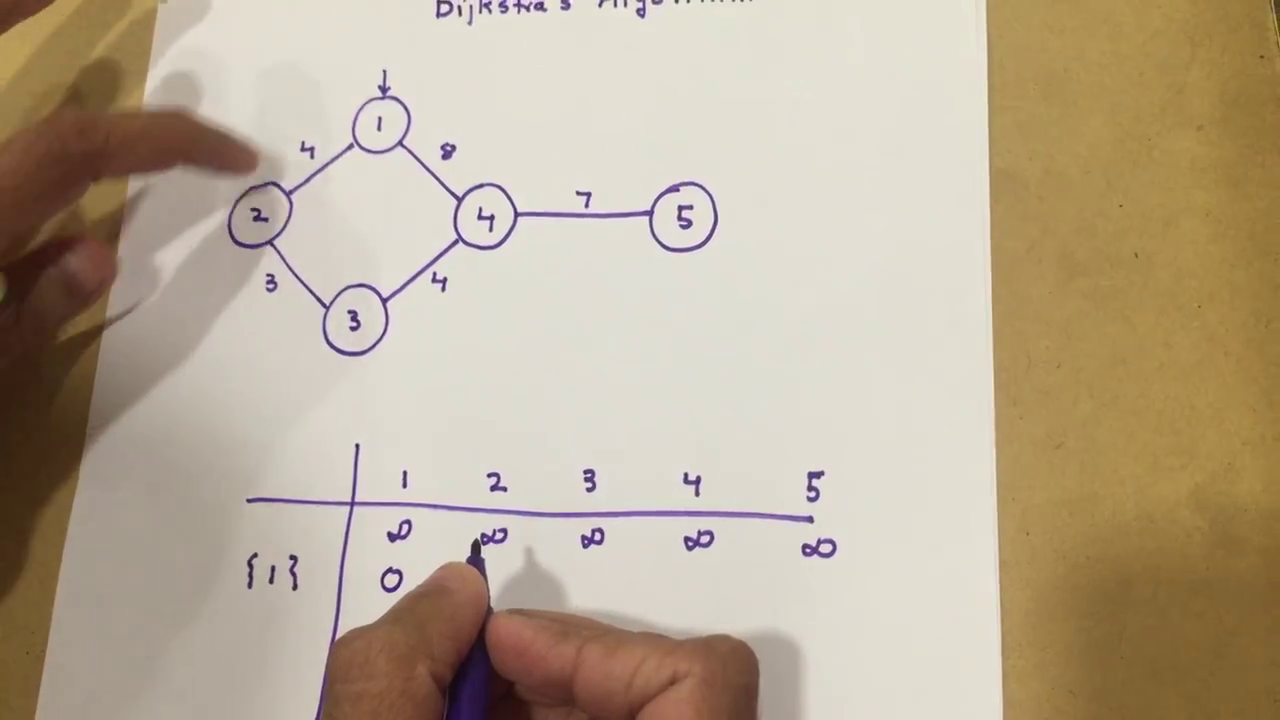 Dijkstra's Algorithm
1
4 8
2 4 7 5
3 4
3
1 2 3 4 5
∞ ∞ ∞ ∞ ∞
{1} 0